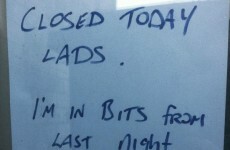 CLOSED TODAY
LADS.
I'M IN BITS FROM
LAST night